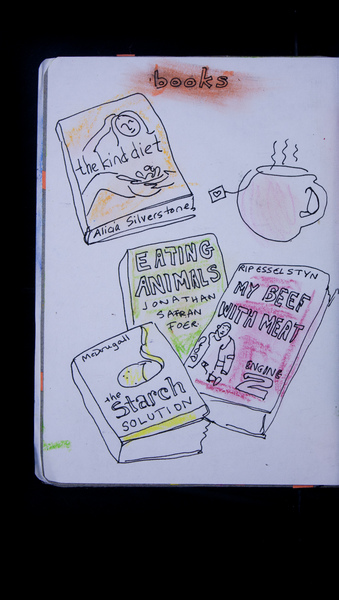 books
the kind diet
Alicia Silverstone
EATING
ANIMALS
JONATHAN
SAFRAN
FOER
RIP ESSELSTYN
MY BEEF
WITH MEAT
ENGINE
2
McDougall
the
Starch
SOLUTION